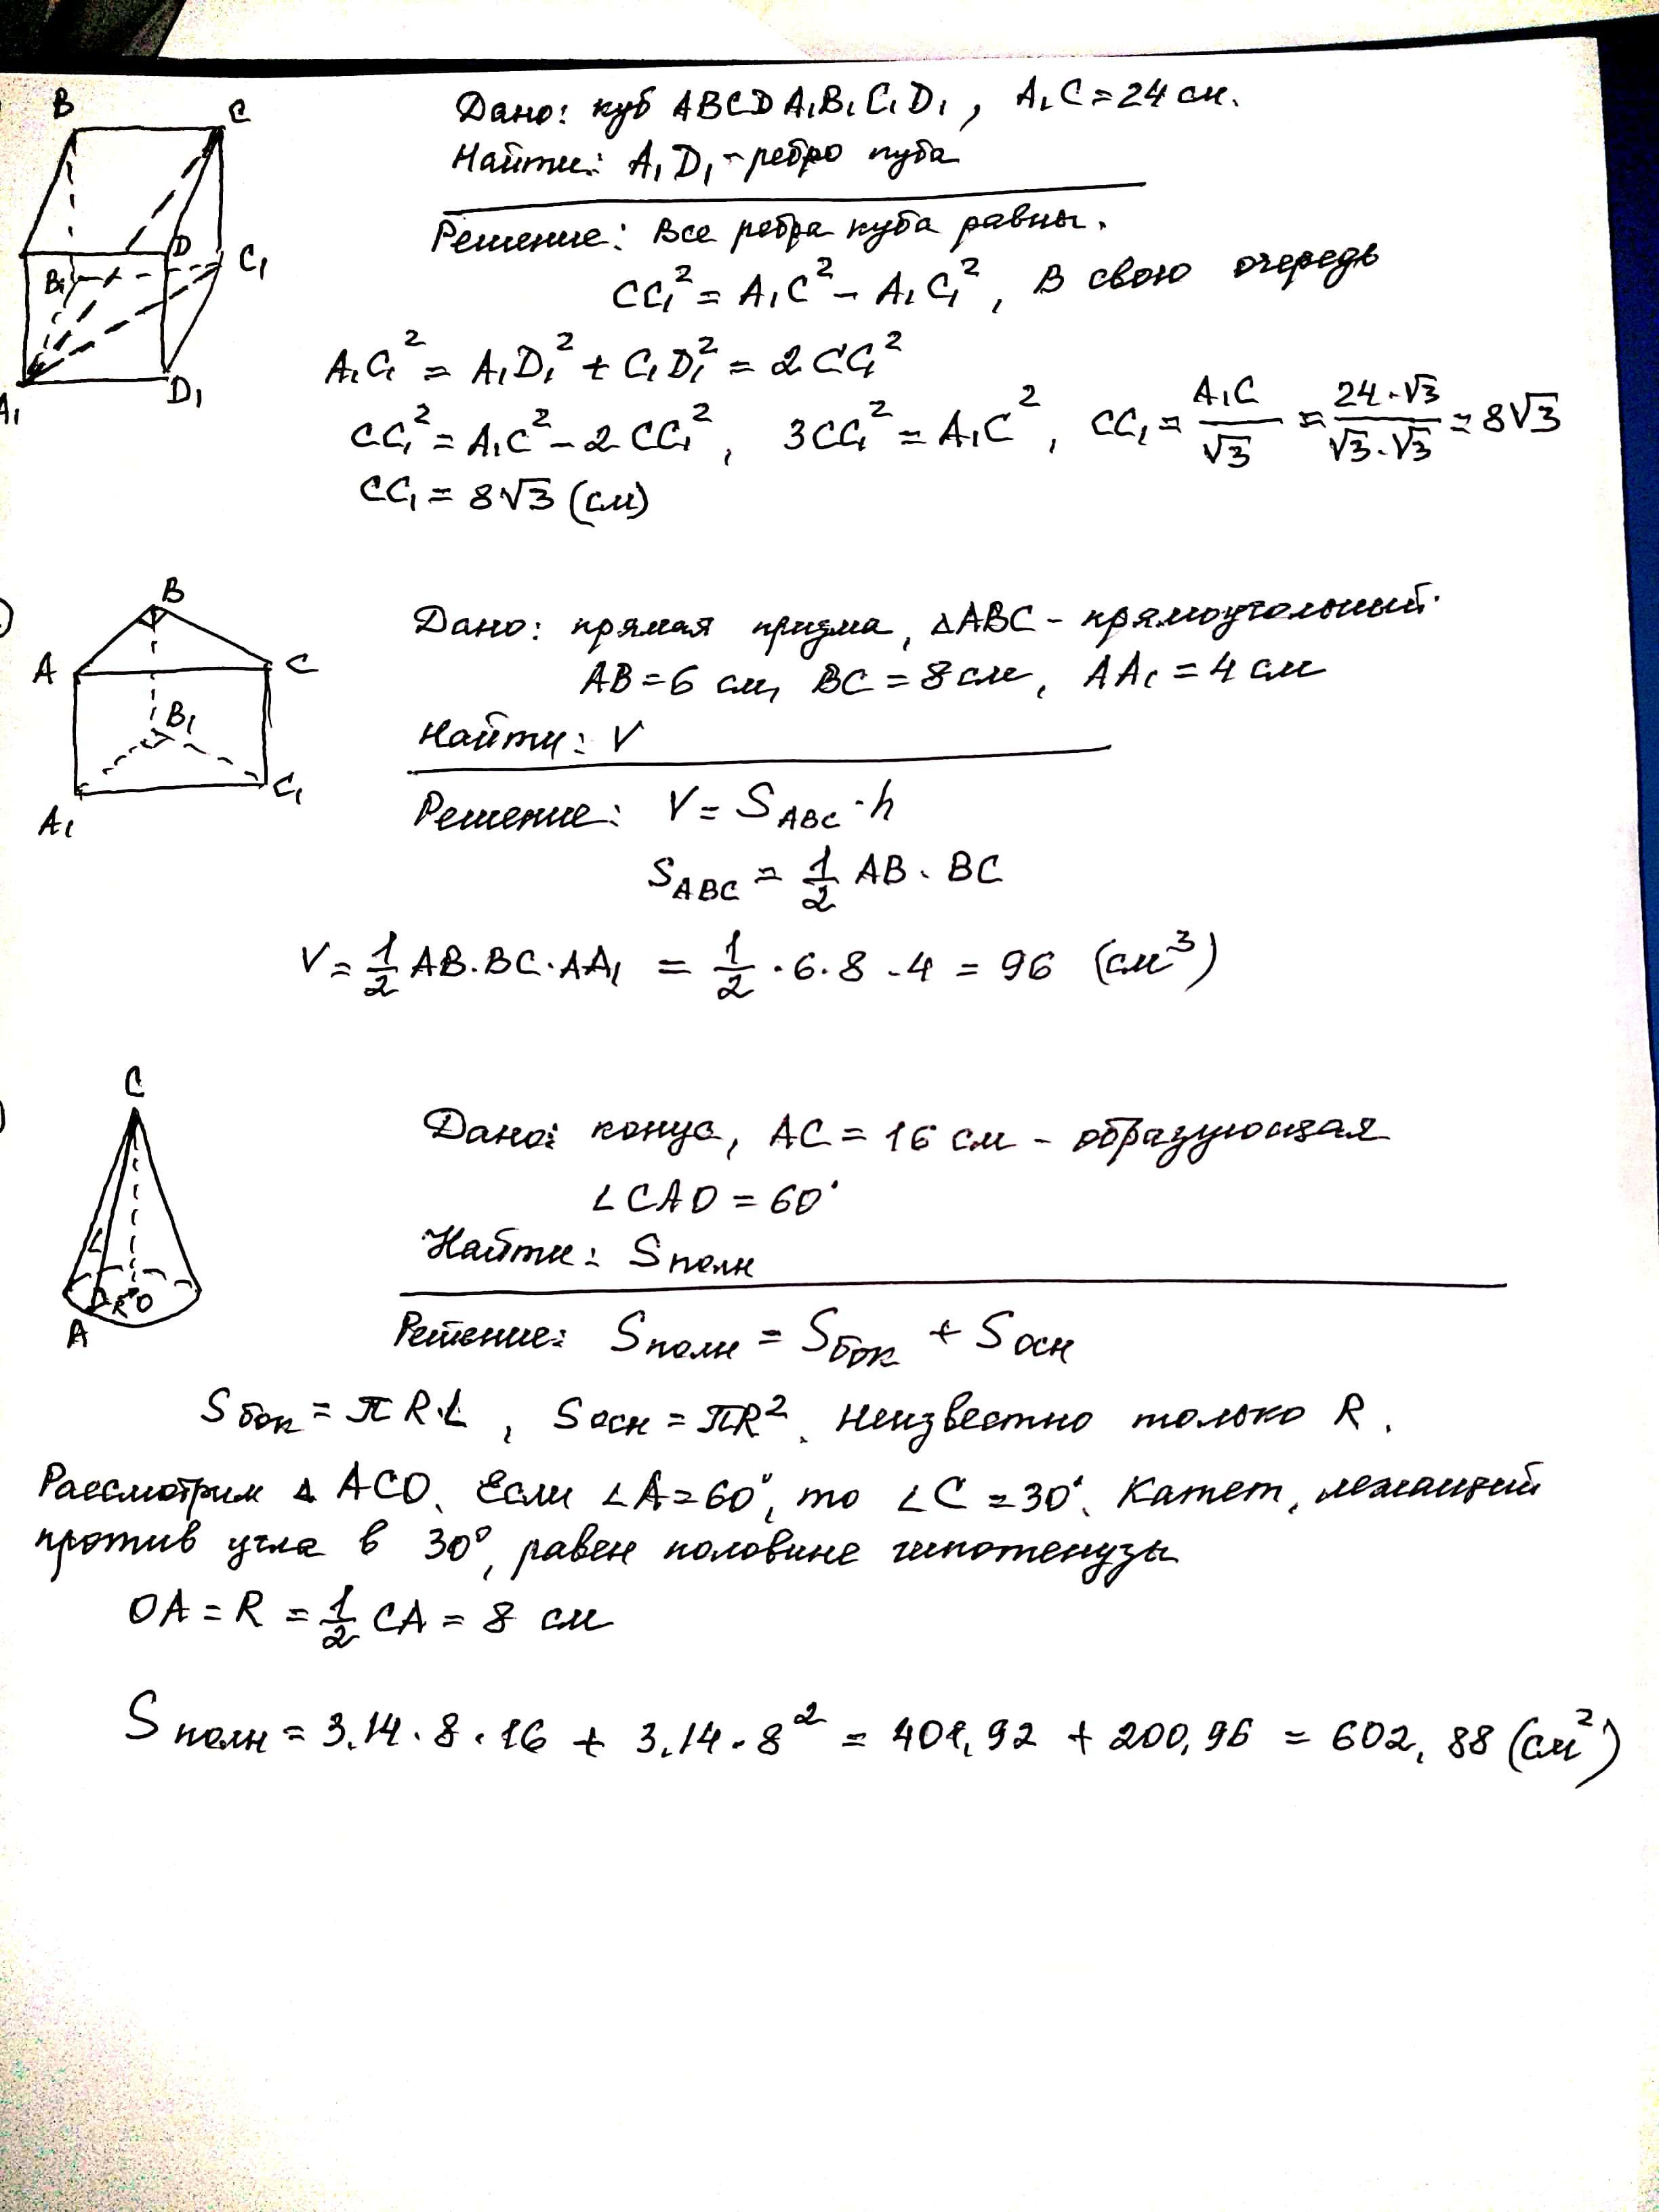 B C
Дано: куб ABCDA₁B₁C₁D₁, A₁C = 24 см.
Найти: A₁D₁ - ребро куба
D
B₁ C₁
A₁ D₁
Решение: Все ребра куба равны.
CC₁² = A₁C² - A₁C₁², В свою очередь
A₁C₁² = A₁D₁² + C₁D₁² = 2CC₁²
CC₁² = A₁C² - 2CC₁², 3CC₁² = A₁C², CC₁ = A₁C/√3 = 24·√3/√3·√3 = 8√3
CC₁ = 8√3 (см)
B
A C
B₁
A₁ C₁
Дано: прямая призма, ΔABC - прямоугольный.
AB = 6 см, BC = 8 см, AA₁ = 4 см
Найти: V
Решение: V = S ABC · h
S ABC = 1/2 AB · BC
V = 1/2 AB·BC·AA₁ = 1/2 · 6 · 8 · 4 = 96 (см³)
C
L
R O
A
Дано: конус, AC = 16 см - образующая
∠CAO = 60°
Найти: S полн
Решение: S полн = S бок + S осн
S бок = πR·L, S осн = πR². Неизвестно только R.
Рассмотрим Δ ACO. Если ∠A = 60°, то ∠C = 30°. Катет, лежащий
против угла в 30°, равен половине гипотенузы
OA = R = 1/2 CA = 8 см
S полн = 3.14 · 8 · 16 + 3.14 · 8² = 401,92 + 200,96 = 602,88 (см²)